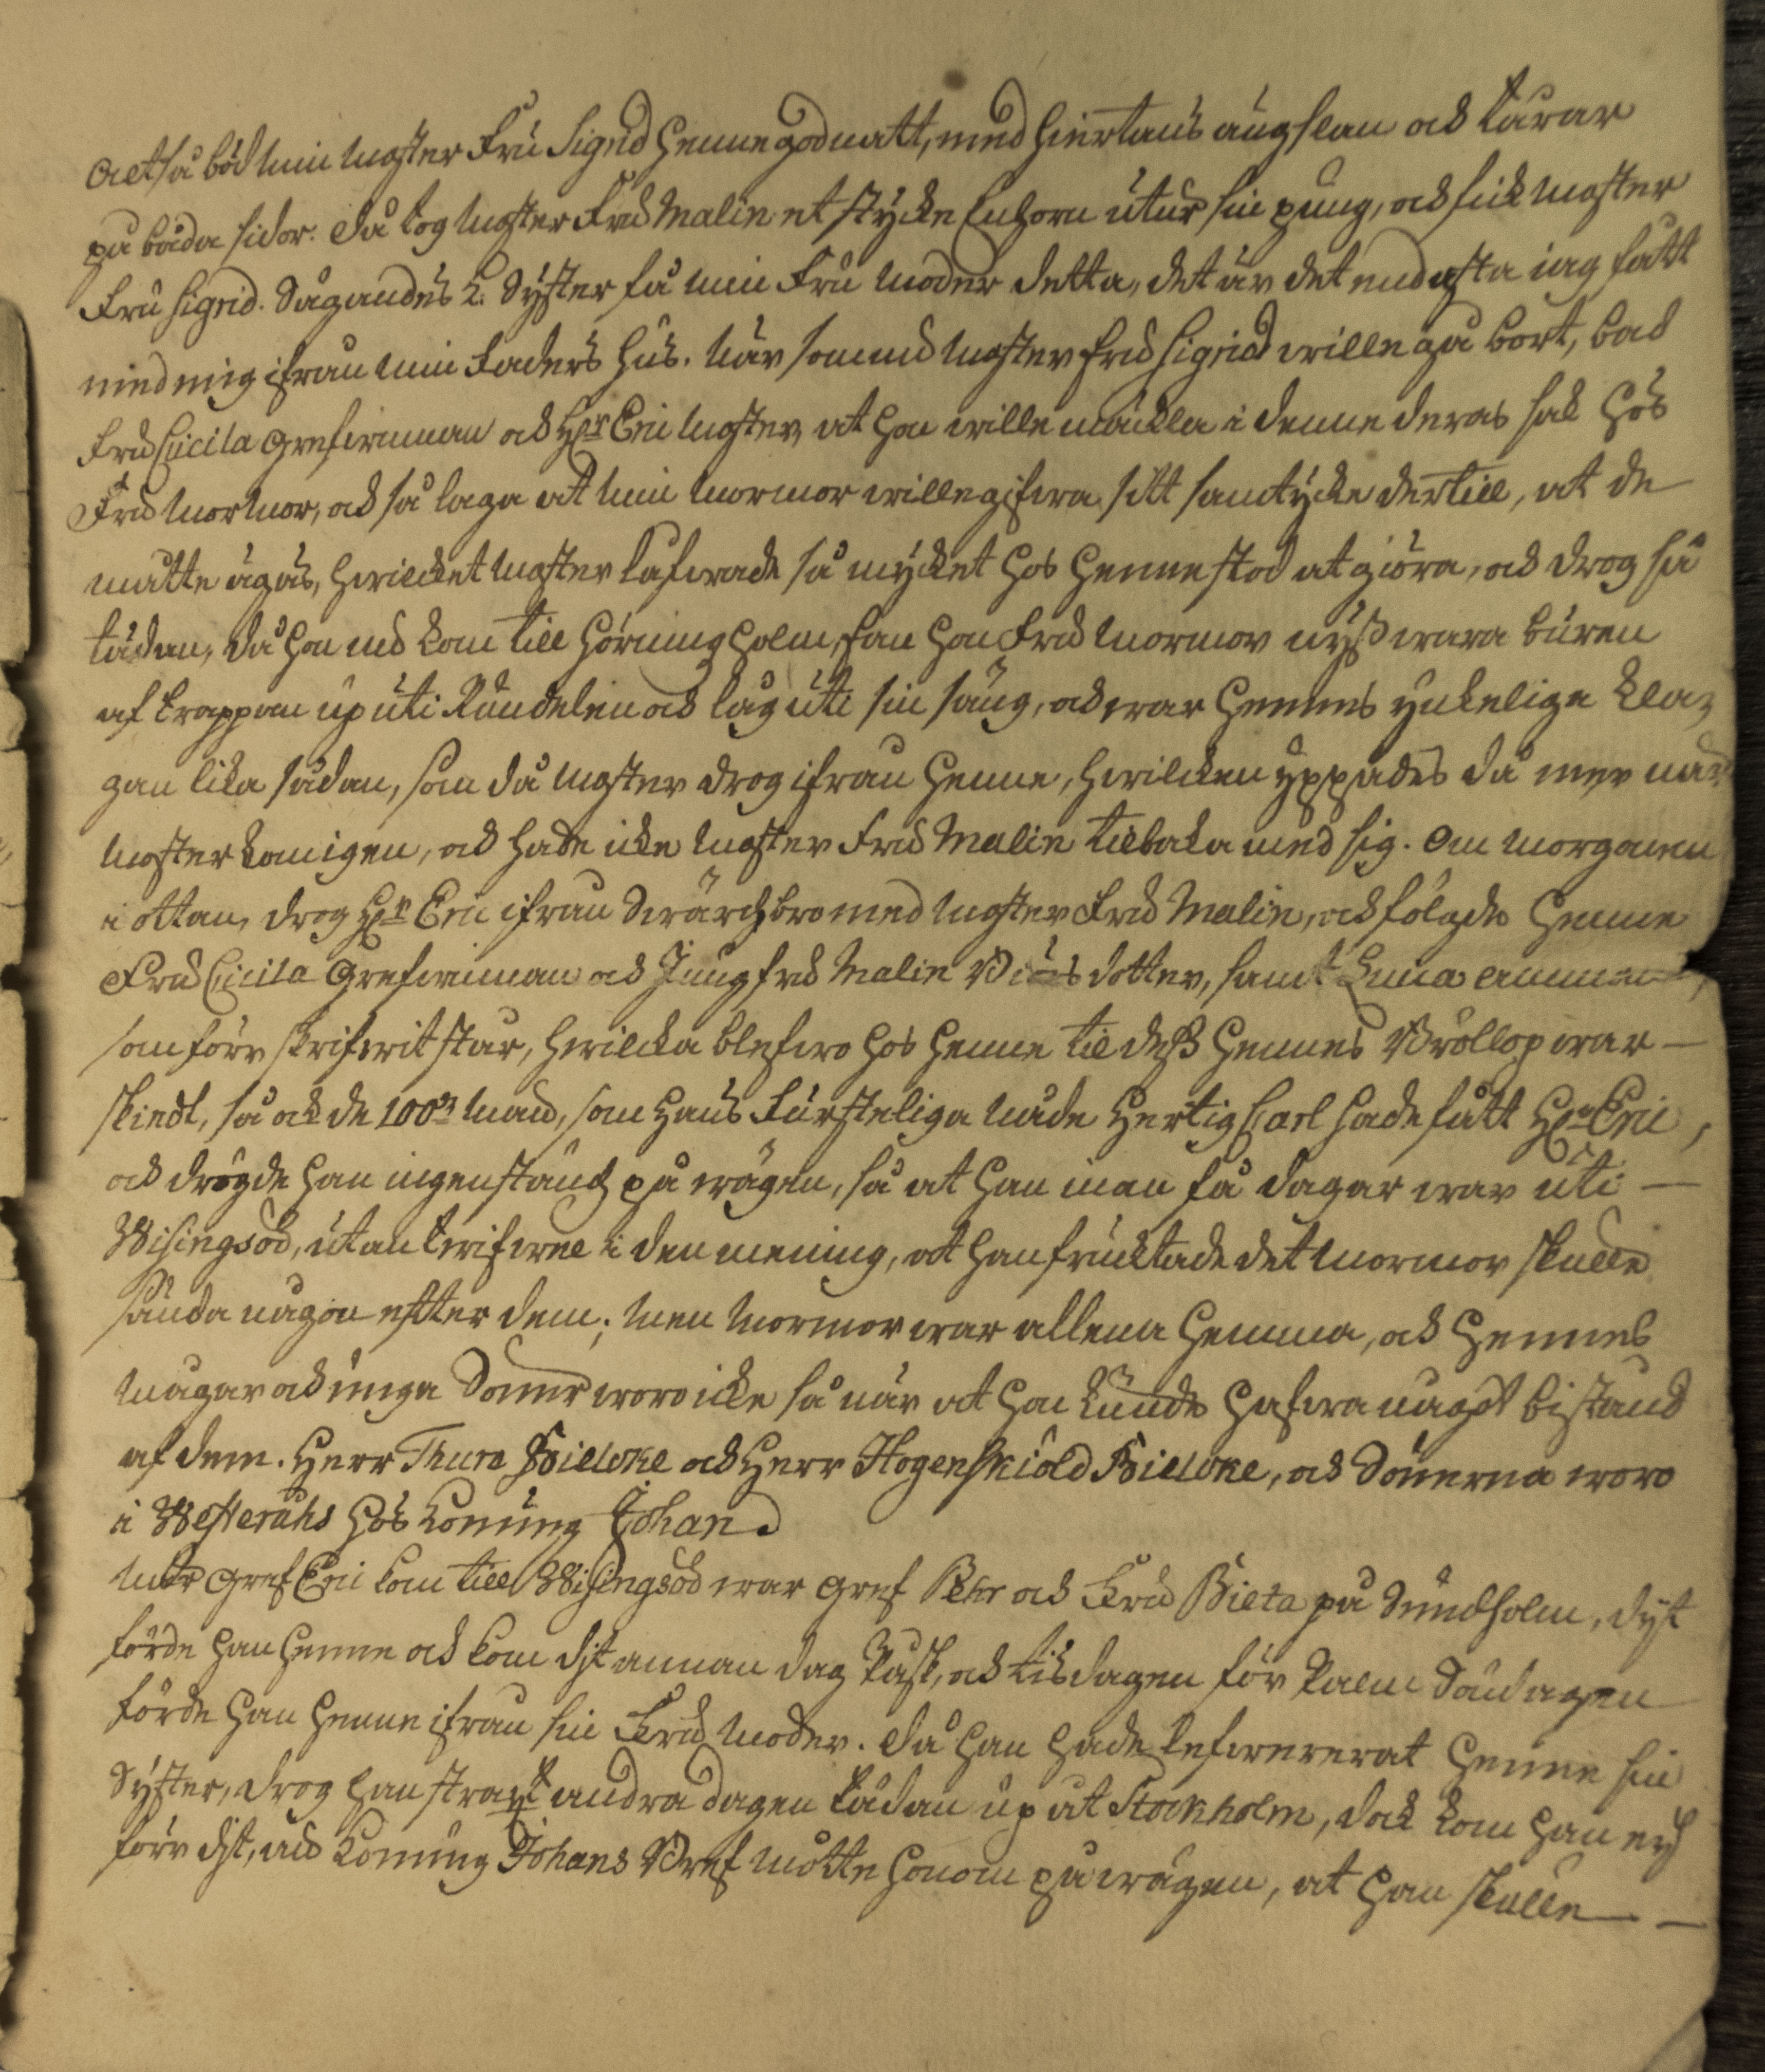 Altså böd min Moster Fru Sigrid henne godnatt, med hiertans ängslan och tårar
på båda sidor. Då tog Moster Fru Malin et stycke Enhorn utur sin pung, och fick Moster
Fru Sigrid. Säijandes k. Syster få min Fru Moder detta, det är det endaste iag fått
med mig ifrån min Faders hus. När som nu Moster Fru Sigrid wille gå bort, bad
Fru Cicila Grefwinnan och Hr Eric Moster, at hon wille mäckla i denne deras sak hos
Fru Mormor, och så laga at min Mormor wille gifwa sitt samtycke dertill, at de
måtte ägas, hwilcket Moster låfwade så mycket hos henne stod at giöra, och drog så
tädan, då hon nu kom till Hörningholm, fan hon Fru Mormor nyss wara buren
af trappan up uti Rundelen och låg uti sin säng, och war hennes ynkeliga kla=
gan lika sådan, som då Moster drog ifrån henne, hwilcken yppades då mer när
Moster kom igen, och hade icke Moster Fru Malin tilbaka med sig. Om Morgonen
i ottan, drog Hr Eric ifrån Swärdzbro med Moster Fru Malin, och fölgde henne
Fru Cicila Grefwinnan och Jungfru Malin dotter, samt Lucia amman,
som förr skrifwit står, hwilcka blefwo hos henne til dess hennes Bröllop war —
skiedt, så och de 100 Man, som Hans Furstliga Nåde Hertig Carl hade fått Hr Eric,
och drögde han ingenstäds på wägen, så at han inan få dagar war uti —
Wisingsöö, utan twifwel i den mening, at han fruktade det Mormor skulle
sända någon efter dem; Men Mormor war allena hemma, och hennes
Mågar och unga Söner woro icke så när at hon kunde hafwa något bistånd
af dem. Herr Thure Bielcke och Herr Hogenskiöld Bielcke, och Sönerna woro
i Westeråhs hos Konung Johan.
När Gref Eric kom till Wisingsöö war Gref Pehr och Fru Bieta på Sundholm, dyt
förde han henne och kom dit annan dag Påsk, och tisdagen för Palm Söndagen
förde han henne ifrån sin Fru Moder. Då han hade lefwererat henne sin
Syster, drog han straxt andra dagen tädan up åt Stockholm, dock kom han ey
förr dit, än Konung Johans Bref mötte honom på wägen, at han skulle —